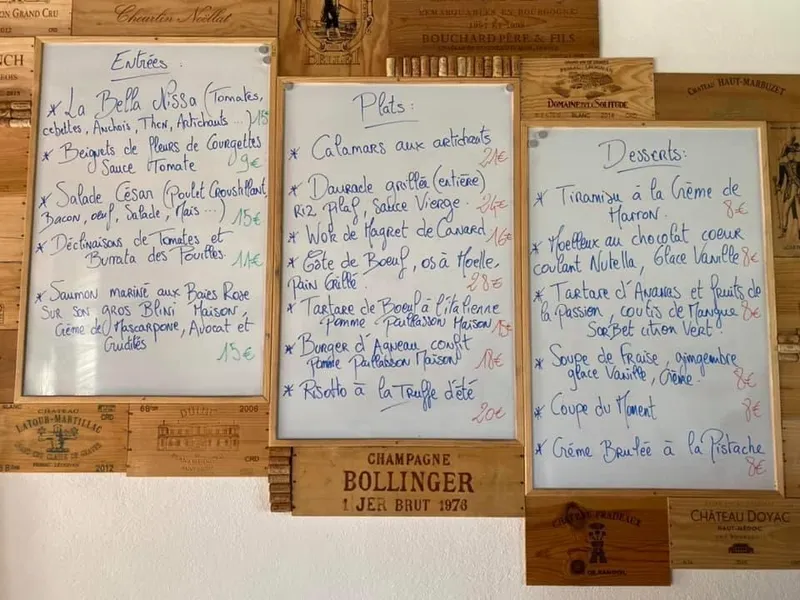 ON GRAND CRU
2012
Cheurlin Noëllat
BELLET
REMARQUABLES EN BOURGOGNE
BOUCHARD PÈRE & FILS
DOMAINE DE LA SOLITUDE
CHÂTEAU HAUT-MARBUZET
Entrées:
* La Bella Nissa (Tomates,
cebettes, Anchois, Thon, Artichauts ...) 15€
* Beignets de fleurs de Courgettes
Sauce Tomate
9€
* Salade César (Poulet Croustillant,
Bacon, oeuf, Salade, Maïs ...)
15€
* Déclinaisons de Tomates et
Burrata des Pouilles.
14€
* Saumon mariné aux Baies Rose
Sur son gros Blini Maison,
Crème de Mascarpone, Avocat et
Crudités
15€
Plats:
* Calamars aux artichauts
21€
* Daurade grillée (entière)
Riz Pilaf, Sauce Vierge.
24€
* Wok de Magret de Canard
16€
* Côte de Boeuf, os à Moelle,
Pain Grillé.
28€
* Tartare de Boeuf à l'italienne
Pomme Paillasson Maison
* Burger d'Agneau confit
Pomme Paillasson Maison
18€
* Risotto à la Truffe d'été
20€
Desserts:
* Tiramisu à la Crème de
Marron.
8€
* Moelleux au chocolat coeur
coulant Nutella, Glace Vanille 8€
* Tartare d'Ananas et fruits de
la Passion, coulis de Mangue 8€
Sorbet citron Vert.
* Soupe de Fraise, gingembre
glace Vanille, Crème.
8€
* Coupe du Moment
8€
* Crème Brulée à la Pistache
8€
CHATEAU
LATOUR-MARTILLAC
2012
CRD
2006
CRD
CHAMPAGNE
BOLLINGER
1 JER BRUT 1976
CHÂTEAU PRADEAUX
CHÂTEAU DOYAC
HAUT-MÉDOC